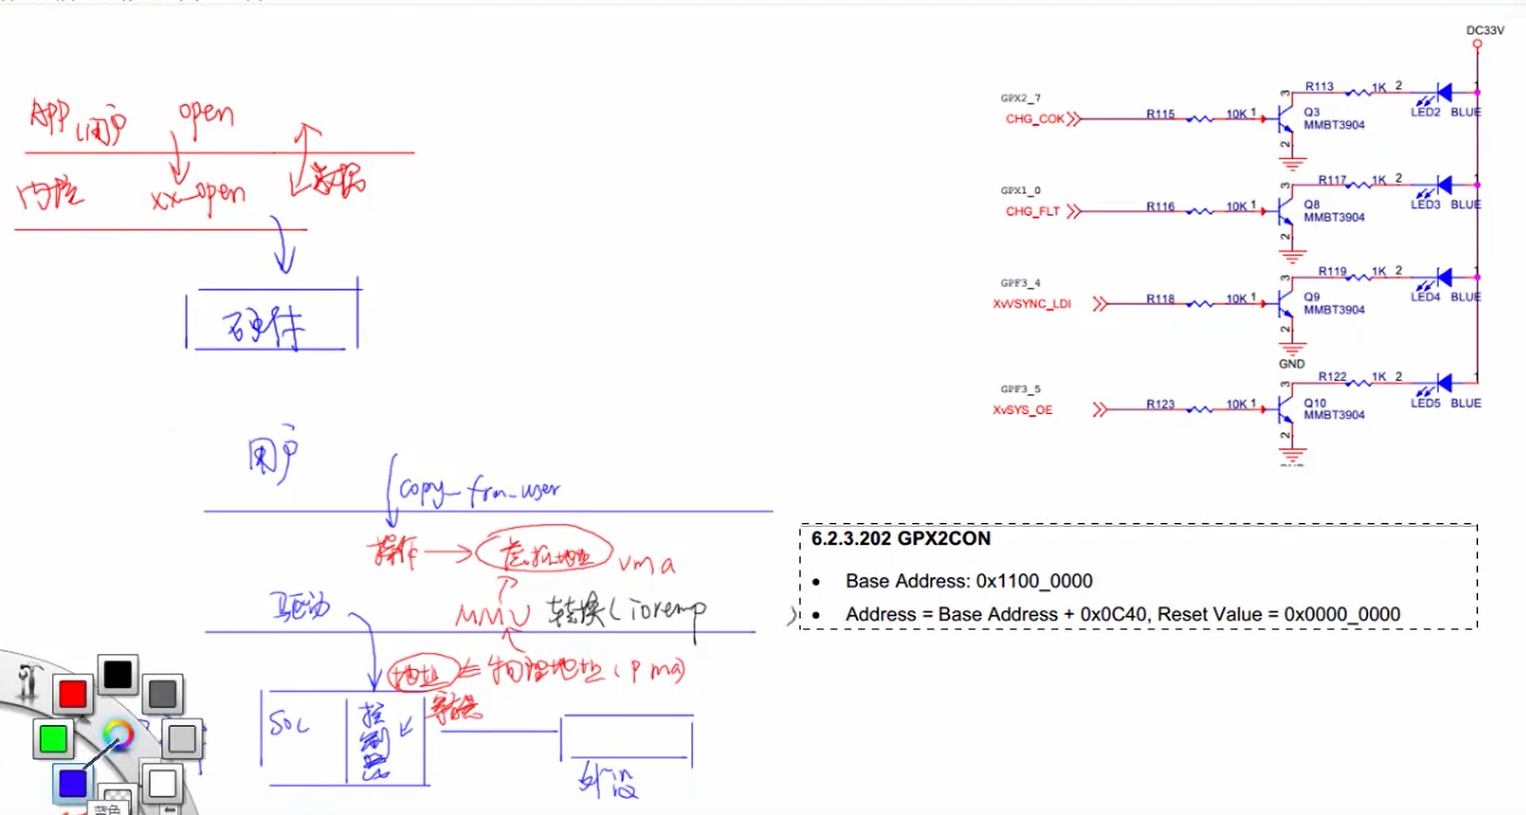 APP 用户 open
内核 xx_open 数据
硬件
用户
copy_frm_user
操作 虚拟地址 vma
驱动 MMU 转换(ioremp)
地址 = 物理地址(pma)
SOC 控制器 寄存器
外设
DC33V
GPX2_7
CHG_COK
R115 10K 1
3 2
Q3
MMBT3904
R113 1K 2 1
LED2 BLUE
GPX1_0
CHG_FLT
R116 10K 1
3 2
Q8
MMBT3904
R117 1K 2 1
LED3 BLUE
GPF3_4
XvVSYNC_LDI
R118 10K 1
3 2
Q9
MMBT3904
R119 1K 2 1
LED4 BLUE
GND
GPF3_5
XvSYS_OE
R123 10K 1
3 2
Q10
MMBT3904
R122 1K 2 1
LED5 BLUE
6.2.3.202 GPX2CON
• Base Address: 0x1100_0000
• Address = Base Address + 0x0C40, Reset Value = 0x0000_0000
蓝色